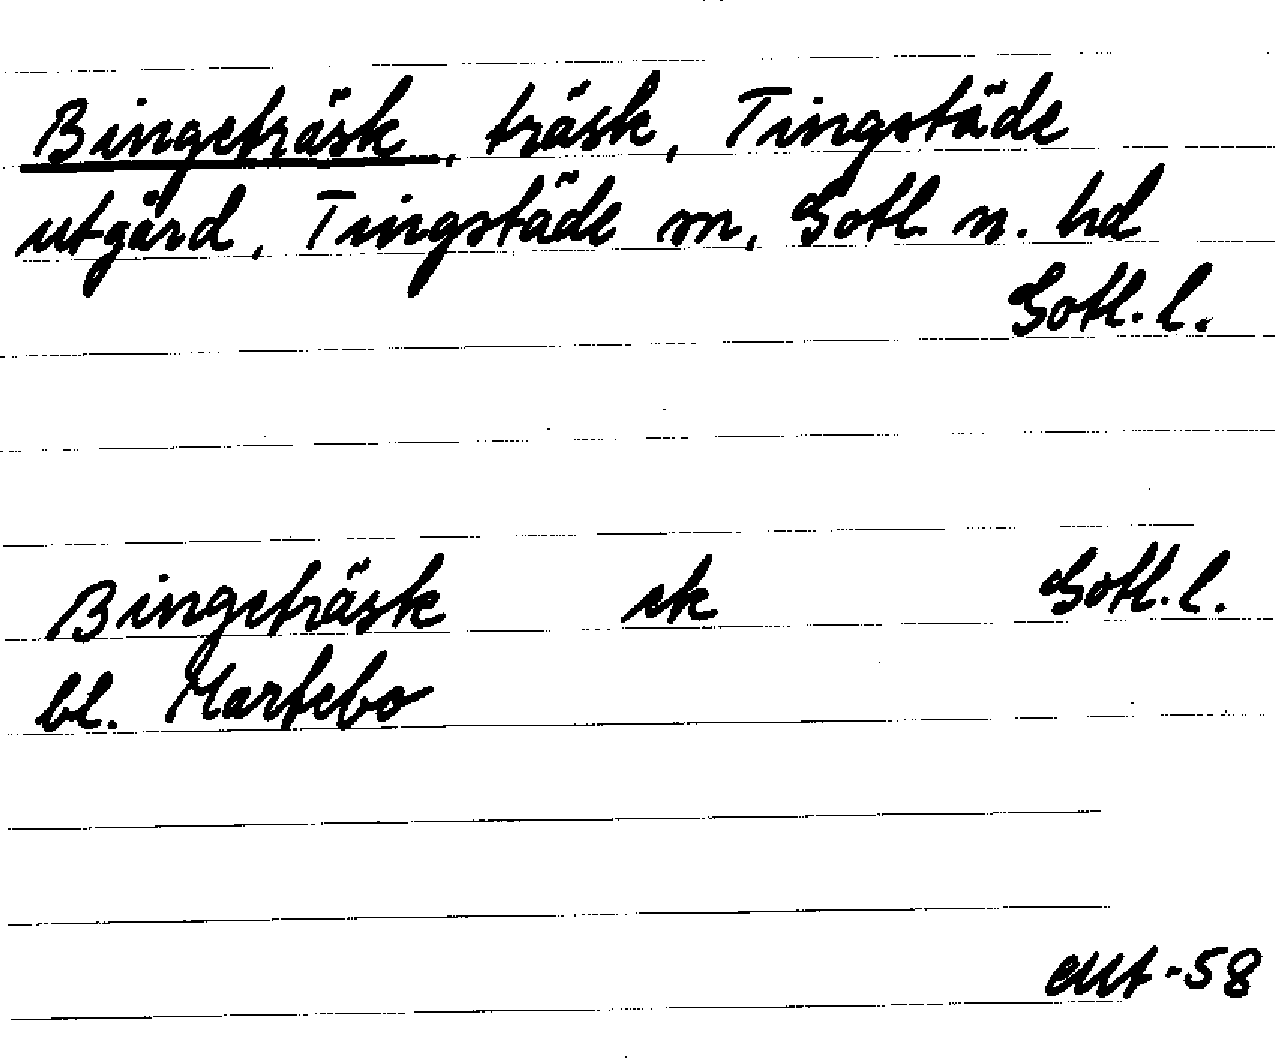 Bingeträsk, träsk, Tingstäde
utgård, Tingstäde sn, Gotl n. hd
Gotl. l.
Bingeträsk ek Gotl. l.
bl. Martebo
-58